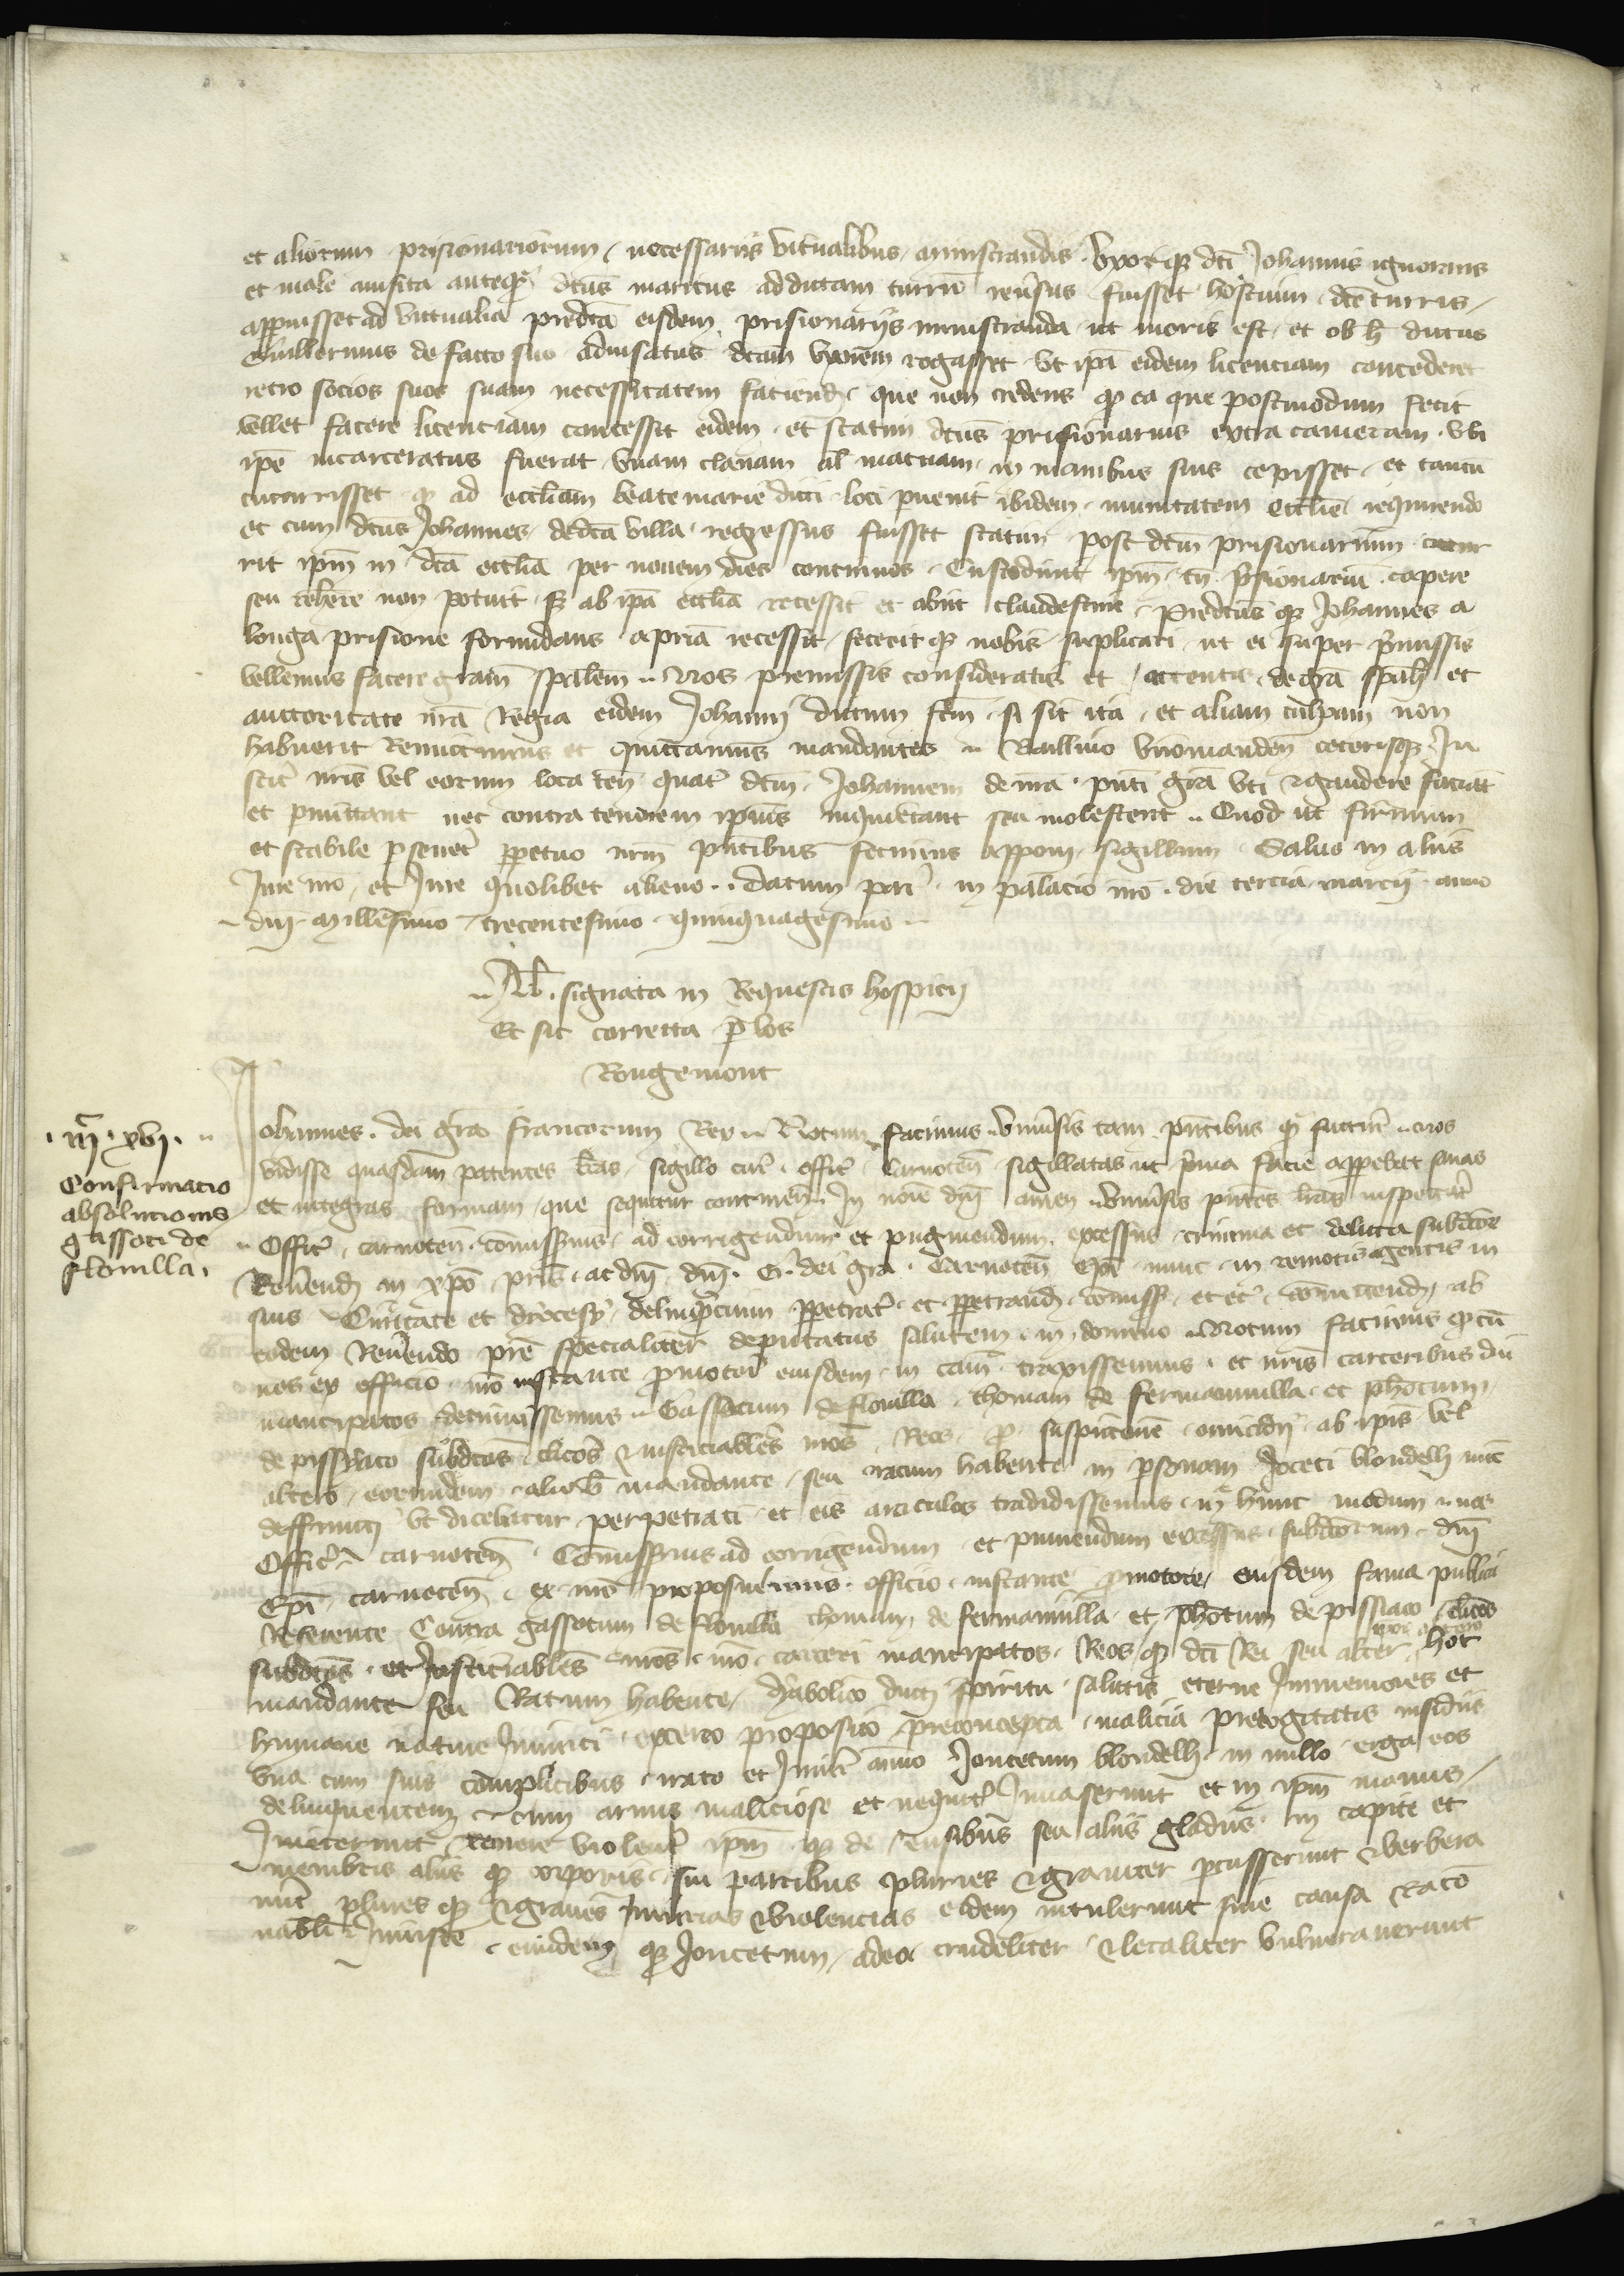 et aliorum prisionariorum necessariis victualibus ministrandis uxorque dcī Johannis ignorans
et male avisita anteq̄ dcūs maritus ad dictam turrim reūsus fuisset hostium dcē turris
apperuisset ad victualia predcā eisdem prisionariis ministranda ut moris est et ob h dictus
Guillermus de facto suo advisatus dcām uxorem rogasset ut ipā eidem licenciam concederet
retro socios suos suam necessitatem faciend que non credens qd ea que postmodum fecit
vellet facere licenciam concessit eidem et statim dcūs prisionarius extra cameram ubi
ipē incarceratus fuerat unam clavam al macuam in manibus suis cepisset et tantū
cucurrisset q ad eccliam beate marie dicti loci pvenit ibidem munitatem ecclīe requirendo
et cum dcūs Johannes de dcā villa regressus fuisset statim post dcm prisionarium cucur
rit ipm in dcā ecclīa per novem dies continuos Custodivit ipm tn p̄sionariū capere
seu rehēre non potuit s ab ipā ecclīa recessit et abiit clandestine Predcūs q Johannes a
longa prisione formidans a priā recessit fecerit q nobis suplicari ut ei super p̄missis
vellemus facere grām spālem Nos premissis consideratis et attentis de grā spāli et
auctoritate nrā Regia eidem Johanni dictum fcm si sit ita et aliam culpam non
habuerit Remittimus et quittamus mandantes Baillivo viromanden ceterisq Ju
stic nrīs vel eorum loca ten quat dcm Johannem de nrā pnti grā uti & gaudere faciāt
et pmittant nec contra tenorem ipius inquietant seu molestent Quod ut firmum
et stabile pseveret ppetuo nrm pntibus fecimus apponi sigillum Salvo in aliis
Jure nrō et Jure quolibet alieno Datum par in palacio nrō die tercia marcii anno
dni millesimo trecentesimo quinquagesimo
Al signata in Requestis hospicii
Et sit correcta p vos
Rougemont
iiij̄ xvi
Confirmacio
absolucionis
gassoti de
flovilla
Johannes dei grā francorum Rex Notum facimus univsis tam pntibus q futur nos
vidisse quasdam patentes lrās sigillo cur offic Carnoten sigillatas ut p̄ma facie apperebat sanas
et integras formam que sequitur continen In noīe dni amen univsis pntes lrās inspectur
Offic carnoten comissarius ad corrigendum et pugniendum excessus crimina et delicta subdcōr
Revendi in xpo pris ac dni dni G dei grā Carnoten epi nunc in remotis agentis in
suis Civitate et dyocesy delinquciū ppetrat et ppetrand comiss et ec comictend ab
eodem Revendo prē specialiter deputatus salutem in domino Notum facimus q cū
nos ex officio nrō instante pmotore eiusdem in cām traxissemus et nrīs carceribus diū
mancipatos detinuissemus Gassotum de flovilla thomam de fermainvilla et phōtum
de pissyaco subdcōs clicōs & insticiabiles nrōs Reos p suspicione omicidii ab ipīs vel
altero eorumdem alio mandante seu ratum habente in psonam Joceti blondelli nūc
deffuncti ut dicebatur perpetrati et eis articulos tradidissemus in hunc modum nos
Offic carnoten Comissarius ad corrigendum et puniendum excessus subdcōrum dni
Epi carnoten ex nrō proposuimus officio instante pmotore eiusdem fama publica
Referente Contra gassotum de flovilla thomam de fermainvilla et phōtum de pissiaco clicos
subdcōs et Justiciabiles nrōs nrō carceri mancipatos Reos q dcī Rei seu alter hoc
mandante seu Ratum habente dyabolico ducti spiritu salutis eterne Immemores et
humane nature Inimici excerto proposito preconcepta malicia precogitatis insidiis
una cum suis complicibus irato et Inimico animo Joncetum blondelli in nullo erga eos
delinquentem cum armis maliciose et nequit Invaserunt et in ipm manus
Iniecerunt temere violent ipm q de ensibus seu aliis gladiis in capite et
membris aliis q corporis sui partibus pluries & graviter pcusserunt & verbera
runt plures q & graves Iniurias & violencias eidem intulerunt sine causa Racō
nabili Iniuste eundem q Joncetum adeo crudeliter & letaliter vulneraverunt